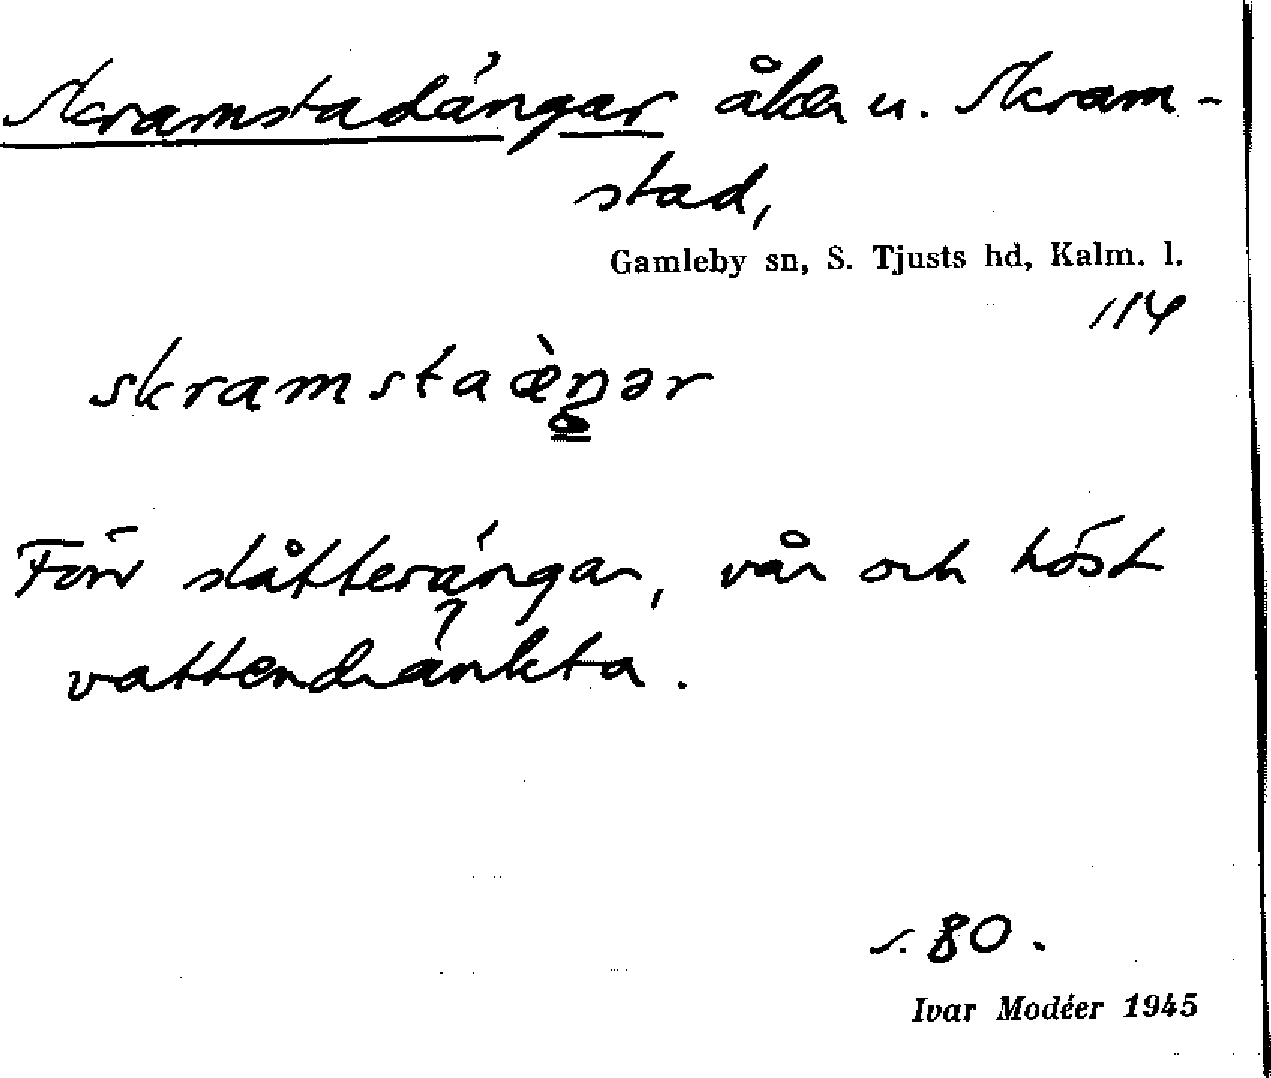 Skramstadängar åker u. Skram-
stad,
Gamleby sn, S. Tjusts hd, Kalm. l.
114
skramstaæ̀ŋər
Förr slåtterängar, vår och höst
vattendränkta.
s. 80.
Ivar Modéer 1945